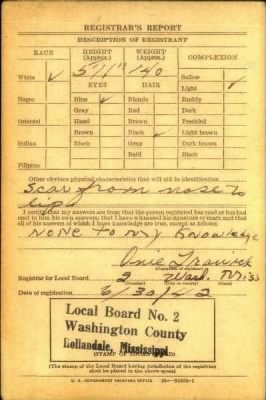 REGISTRAR'S REPORT
DESCRIPTION OF REGISTRANT
RACE HEIGHT (Approx.) WEIGHT (Approx.) COMPLEXION
White ✓ 5'11" 140 Sallow
EYES HAIR Light ✓
Negro Blue ✓ Blonde Ruddy
Gray Red Dark
Oriental Hazel Brown Freckled
Brown Black ✓ Light brown
Indian Black Gray Dark brown
Bald Black
Filipino
Other obvious physical characteristics that will aid in identification.
Scar from nose to
lip
I certify that my answers are true; that the person registered has read or has had
read to him his own answers; that I have witnessed his signature or mark and that
all of his answers of which I have knowledge are true, except as follows:
None to my knowledge
(Signature of registrar)
Registrar for Local Board 2 Wash. Miss
Date of registration 6/30/42
Local Board No. 2
Washington County
Hollandale, Mississippi
(STAMP OF LOCAL BOARD)
(The stamp of the Local Board having jurisdiction of the registrant
shall be placed in the above space)
U. S. GOVERNMENT PRINTING OFFICE